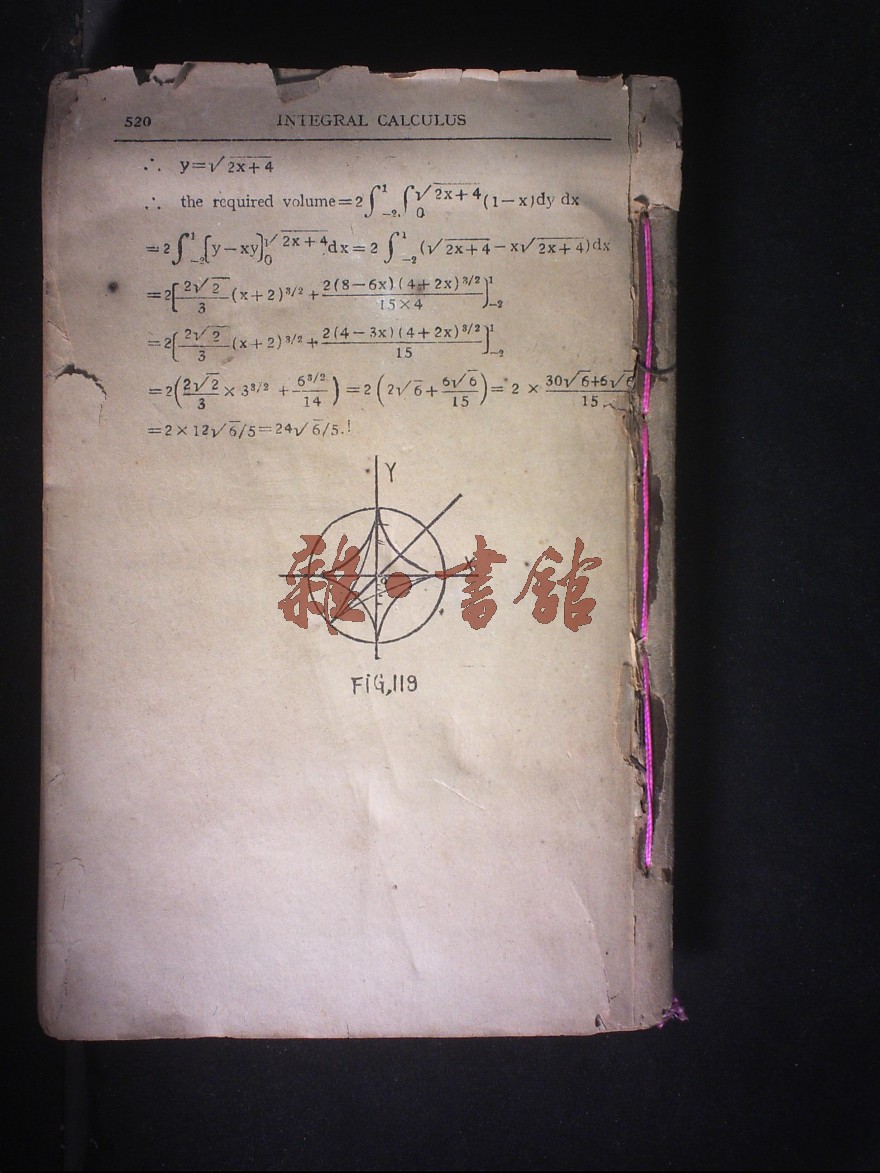 520 INTEGRAL CALCULUS
∴ y=√2x+4
∴ the required volume=2∫₋₂¹∫₀^√2x+4(1−x)dy dx
=2∫₋₂¹[y−xy]₀^√2x+4dx=2∫₋₂¹(√2x+4−x√2x+4)dx
=2[2√2/3(x+2)^3/2+2(8−6x)(4+2x)^3/2/15×4]₋₂¹
=2[2√2/3(x+2)^3/2+2(4−3x)(4+2x)^3/2/15]₋₂¹
=2(2√2/3×3^3/2+6^3/2/14)=2(2√6+6√6/15)=2×30√6+6√6/15
=2×12√6/5=24√6/5.!
Y
X
雜·書館
FiG,119